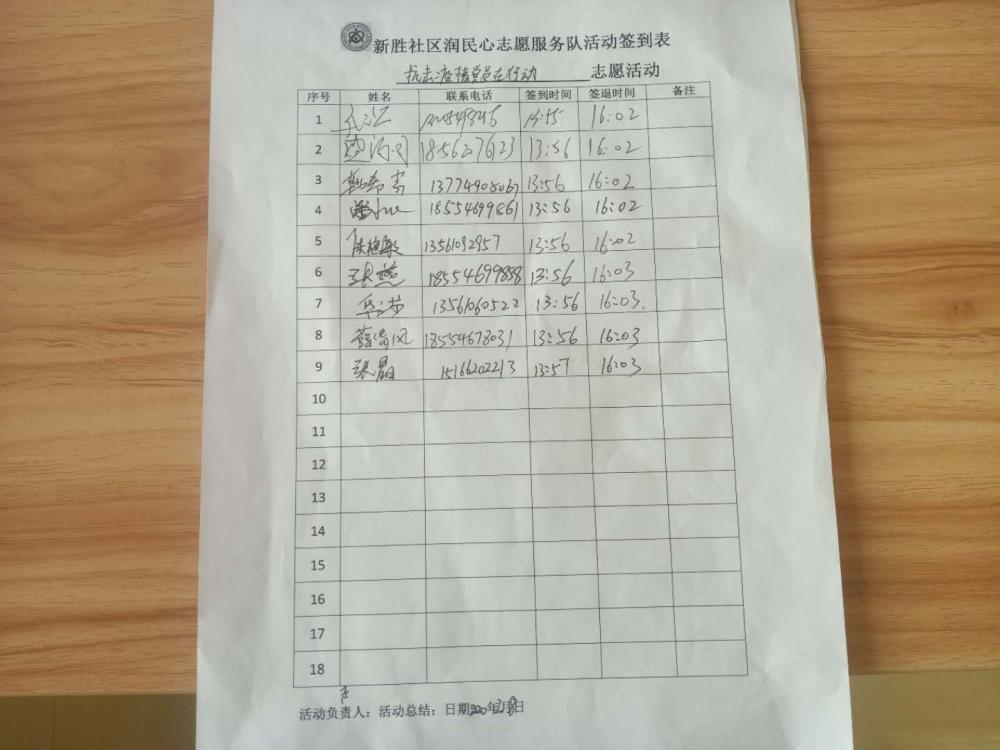 新胜社区润民心志愿服务队活动签到表
抗击疫情党员在行动 志愿活动
序号 姓名 联系电话 签到时间 签退时间 备注
1 13:55 16:02
2 18562076123 13:56 16:02
3 13774908067 13:56 16:02
4 18554699861 13:56 16:02
5 13561092957 13:56 16:02
6 张燕 18554699858 13:56 16:03
7 13561060522 13:56 16:03.
8 18554678031 13:56 16:03
9 张晶 15166202213 13:57 16:03
10
11
12
13
14
15
16
17
18
活动负责人：活动总结：日期 年 月 日